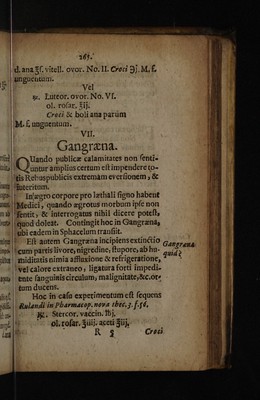 265.
d. ana ℥ſ. vitell. ovor. No. II. Croci ℈j. M. f.
unguentum.
Vel
℞. Luteor. ovor. No. VI.
ol. roſar. ℥ij.
Croci & boli ana parùm
M. f. unguentum.
VII.
Gangræna.
QUando publicæ calamitates non ſenti-
untur amplius certum eſt impendere to-
tis Rebuspublicis extremam everſionem, &
interitum.
In ægro corpore pro læthali ſigno habent
Medici, quando ægrotus morbum ipſe non
ſentit, & interrogatus nihil dicere poteſt,
quid doleat. Contingit hoc in Gangræna,
ubi eadem in Sphacelum tranſit.
Eſt autem Gangræna incipiens extinctio
cum partis livore, nigredine, ſtupore, ab hu-
miditatis nimia affluxione & refrigeratione,
vel calore extraneo, ligatura forti impedi-
ente ſanguinis circulum, malignitate, &c. or-
tum ducens.
Gangræna
quid?
Hoc in caſu experimentum eſt ſequens
Rulandi in Pharmacop. nova thec. 3. f. 56.
℞. Stercor. vaccin. ℔j.
ol. roſar. ℥iiij. aceti ℥iij.
Croci